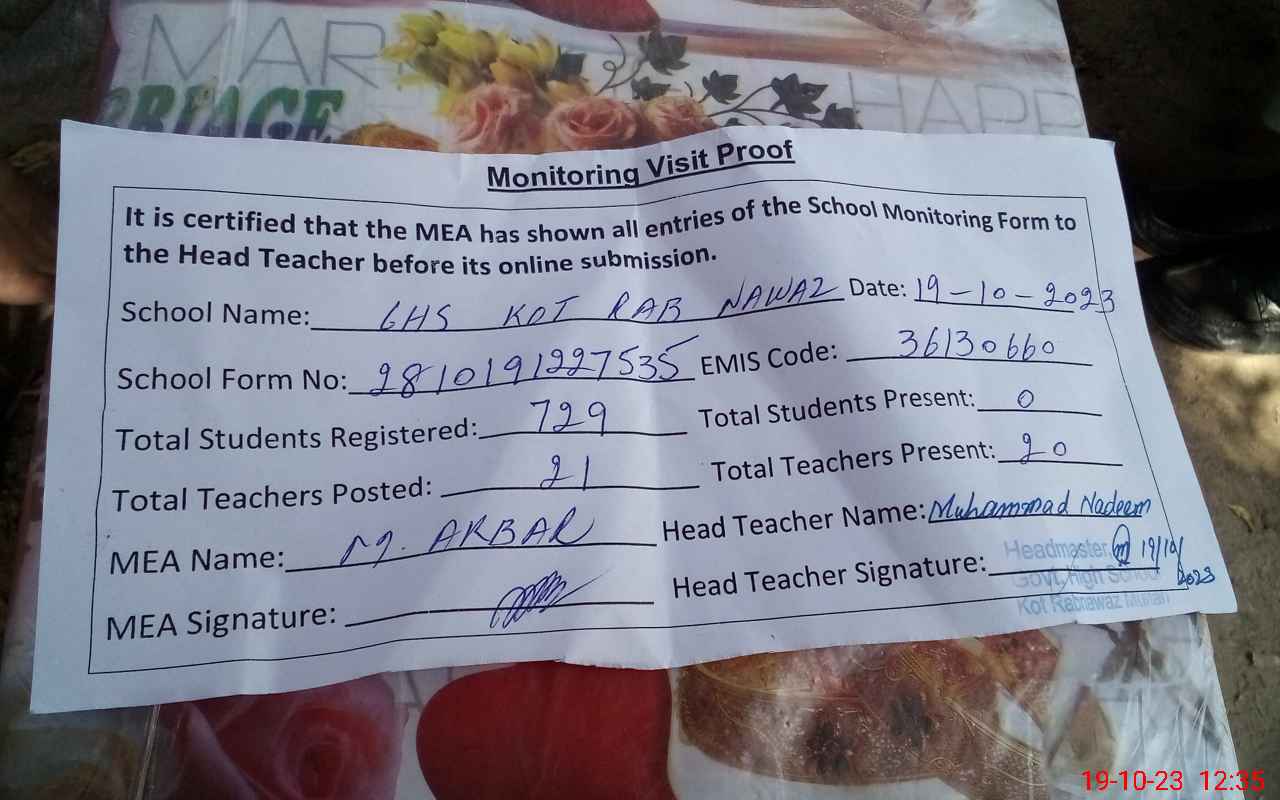 MAR
HAPP
RRIAGE
Monitoring Visit Proof
It is certified that the MEA has shown all entries of the School Monitoring Form to
the Head Teacher before its online submission.
School Name: GHS KOT RAB NAWAZ Date: 19-10-2023
School Form No: 2810191227535 EMIS Code: 36130660
Total Students Registered: 729 Total Students Present: 0
Total Teachers Posted: 21 Total Teachers Present: 20
MEA Name: M. AKBAR Head Teacher Name: Muhammad Nadeem
MEA Signature: Head Teacher Signature: 19/10/2023
Headmaster
Govt. High School
Kot Rabnawaz Multan
19-10-23 12:35